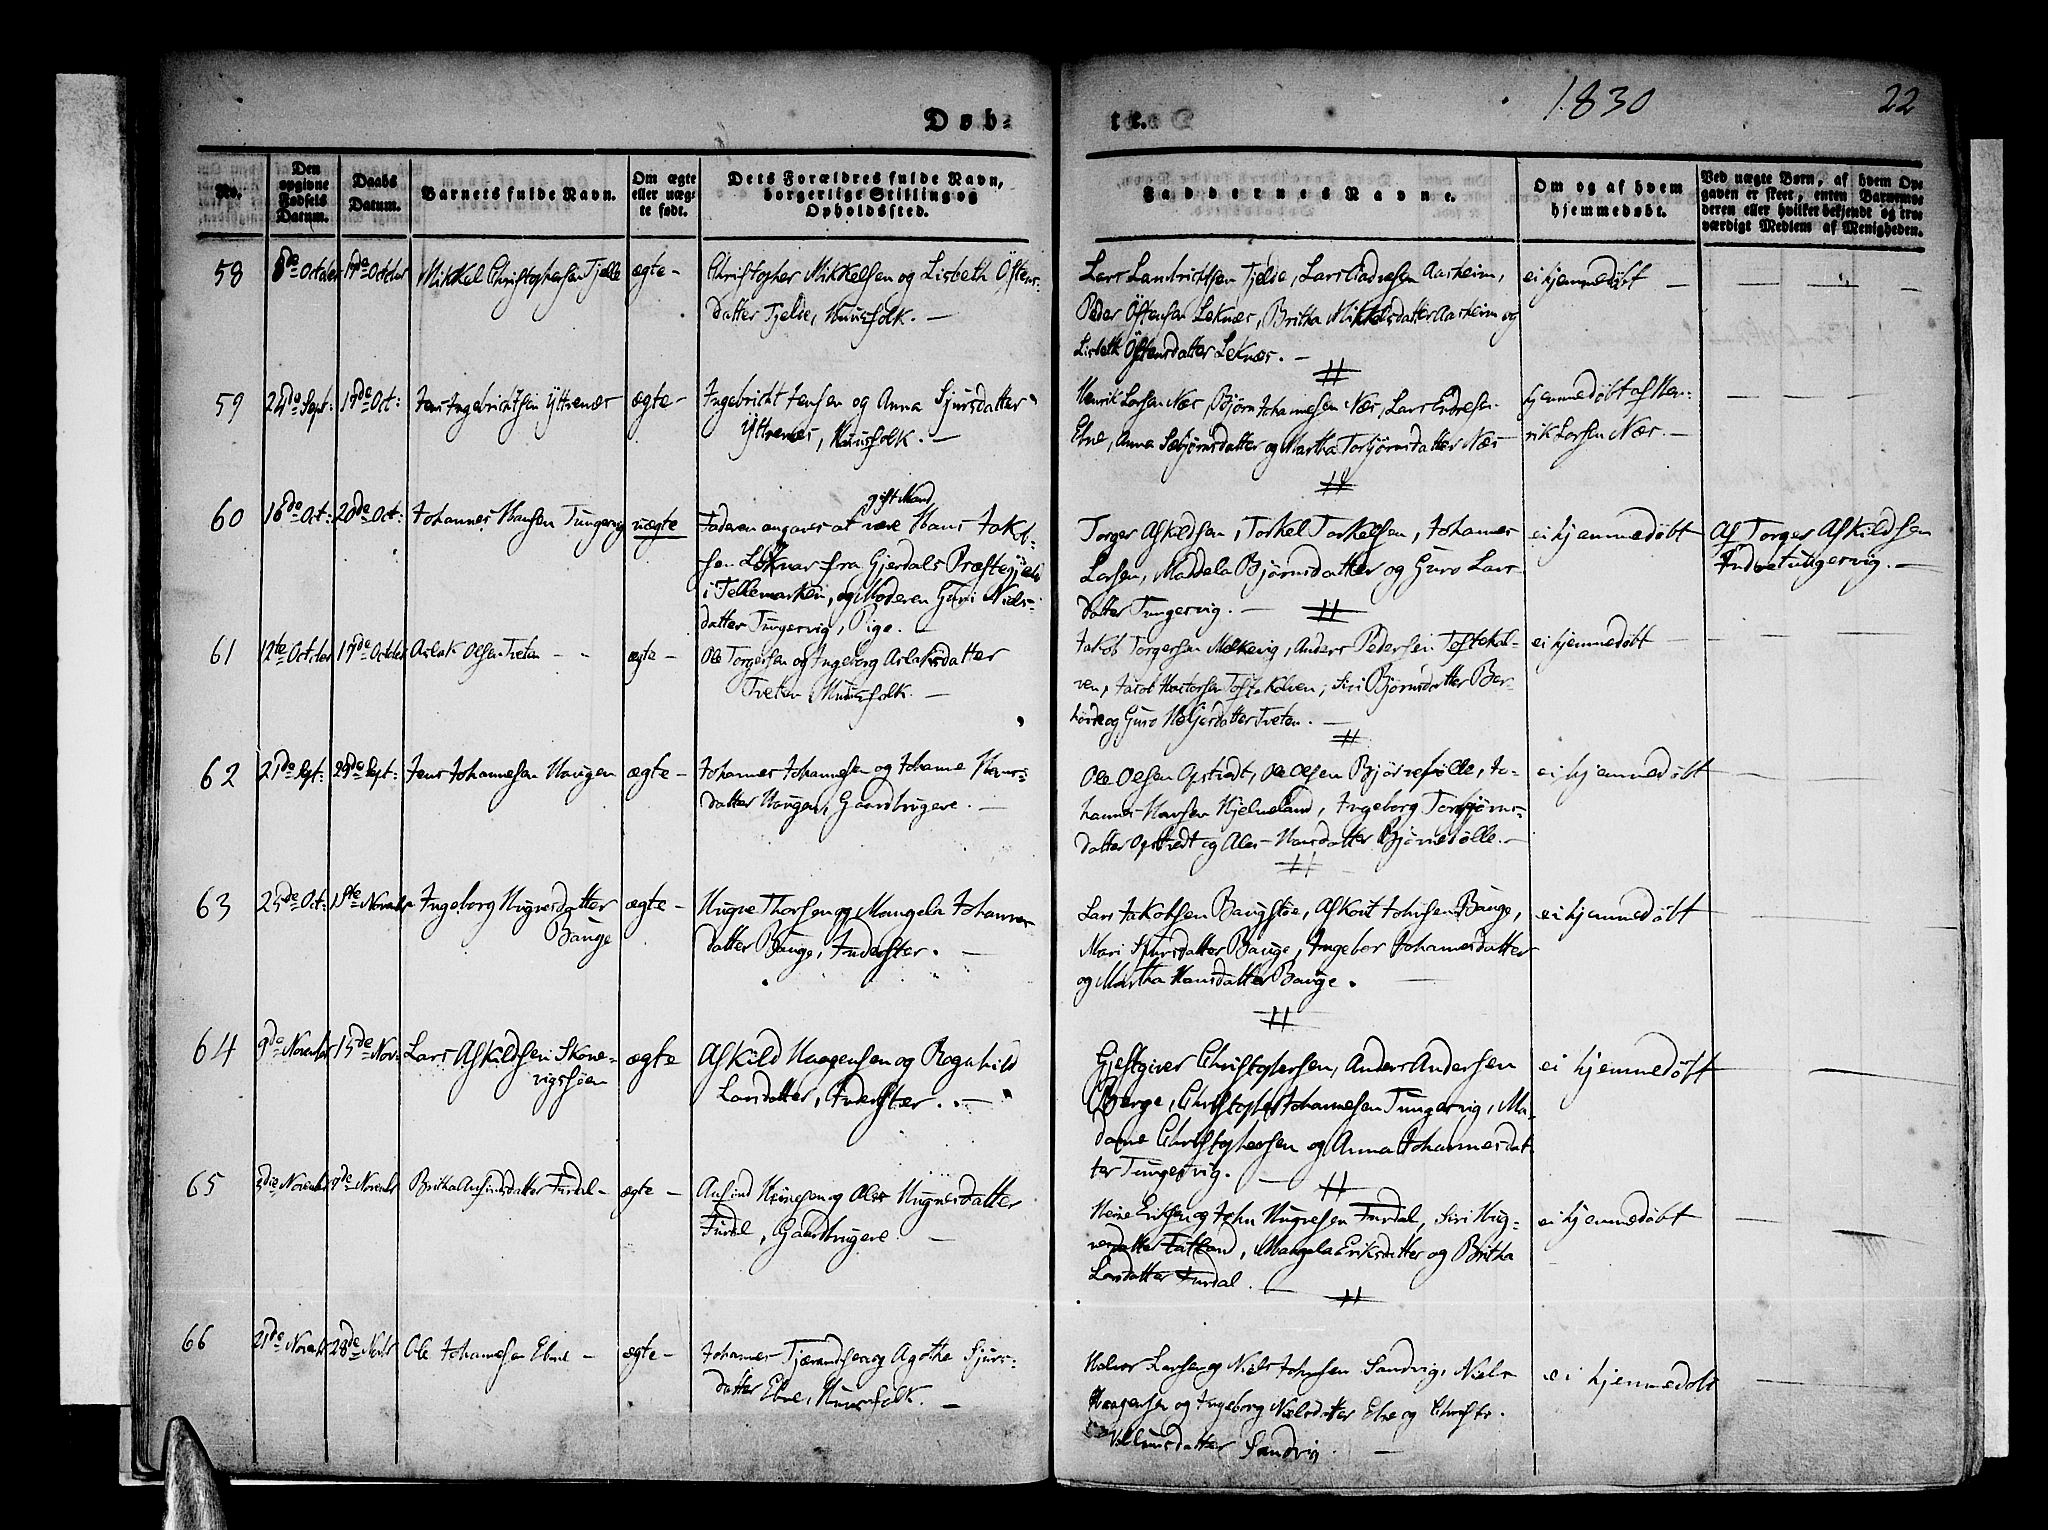 1830
22
Døb-
te.
No.
Den opgivne Fødsels Datum.
Daabs Datum.
Barnets fulde Navn.
Om ægte eller uægte født.
Dets Forældres fulde Navn, borgerlige Stilling og Opholdssted.
Faddernes Navne.
Om og af hvem hjemmedøbt.
Ved uægte Børn, af hvem Opgaven er skeet, enten Barnemoderen eller hvilket bekjendt og troværdigt Medlem af Menigheden.
58 8de October 17de October Mikkel Christophersen Tjelle ægte-
Christopher Mikkelsen og Lisbeth Østens-
datter Tjelle, Huusfolk. -
Lars Lambrichtsen Tjelle, Lars Aarheim, ei hjemmedøbt -
Peder Østensen Leknæs, Britha Mikkelsdatter Aarheim og
Lisbeth Østensdatter Leknæs. -
59 24de Sept: 17de Oct: Jens Ingebrichtsen Yttrenæs ægte-
Ingebricht Jensen og Anna Sjursdatter
Yttrenæs, Huusfolk. -
Henrik Larsen Næs, Bjørn Johannesen Næs, Lars Endresen
Ebne, Anna Sebjørnsdatter og Martha Torbjørnsdatter Næs
hjemmedøbt af Hen-
rik Larsen Næs. -
60 16de Oct: 20de Oct: Johannes Hansen Tungervig uægte
gift Mand
Faderen angaves at være Hans Jakob-
sen fra Gjerdals Præstegjeld
i Tellemarken, og Moderen Guri Niels-
datter Tungervig, Pige. -
Torger Askildsen, Torkel Torkelsen, Johannes
Larsen, Maddela Bjørnsdatter og Guro Lars-
datter Tungervig. -
ei hjemmedøbt
Af Torger Askildsen
Indretungervig. -
61 12te October 17de October Aslak Olsen Tveten ægte -
Ole Torgersen og Ingeborg Aslaksdatter
Tveten Huusfolk. -
Jakob Torgersen Molkevig, Anders Pedersen Toftekal-
ven, Jacob Toftekalven, Siri Bjørnsdatter Ber-
og Guro Tveten. -
ei hjemmedøbt
62 21de Sept: 29de Sept: Jens Johannesen Haugen ægte -
Johannes Johannesen og Johanne Hans-
datter Haugen, Gaardbrugere. -
Ole Olsen Opstvedt, Ole Olsen, Jo-
hannes Hansen Hjelmeland, Ingeborg Torbjørns-
datter Opstvedt og Ales Hansdatter
ei hjemmedøbt
63 25de Oct: 1ste November Ingeborg Hugnesdatter
Bauge
ægte -
Thorsen og Mangela Johannes-
datter Bauge, Inderster. -
Lars Jakobsen Baugstøe, Askout Johnsen Bauge,
Mari Sjursdatter Bauge, Ingebor Johannesdatter
og Martha Hansdatter Bauge.
ei hjemmedøbt
64 9de November 15de Nov: Lars Askildsen Skone-
vigssøen
ægte
Askild Haagensen og Ragnhild
Larsdatter, Inderster. -
Gjestgiver Christophersen, Anders Andersen
Berge, Christopher Johannesen Tungervig, Ma-
dame Christophersen og Anna Johannesdat-
ter Tungervig. -
ei hjemmedøbt
65 November 7de November Britha Aasindsdatter Furdal - ægte -
og Ales Hugnesdatter
Furdal, Gaardbrugere -
Heine Eriksen og John Furdal, Siri
datter, Mangela Eriksdatter og Britha
Larsdatter Furdal. -
ei hjemmedøbt
66 21de November 28de Novbr Ole Johannesen Ebne - ægte -
Johannes Tjærandsen og Agothe Sjurs-
datter Ebne, Huusfolk. -
Halvor Larsen og Niels Johnsen Sandvig, Niels
Haagensen og Ingeborg Nielsdatter Ebne og
datter Sandvig. -
ei hjemmedøbt